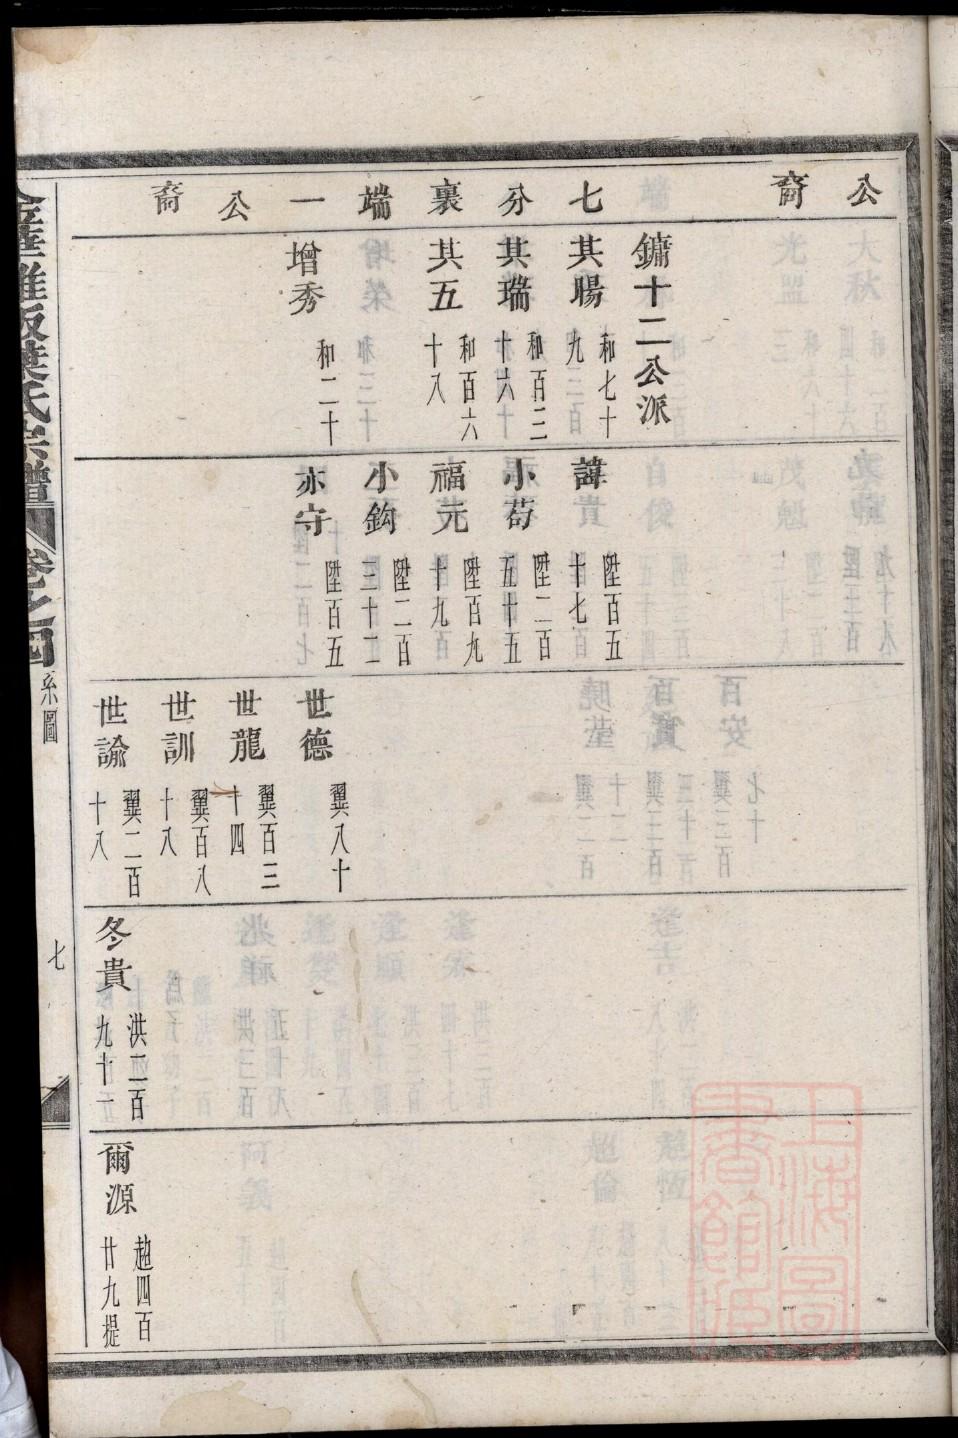 公裔
七分裏端一公裔
鏞十二公派
其腸
和七十九
其瑞
和百三十六
其五
和百六十八
增秀
和二十
諱
陞百五十七
小苟
陞二百五十五
福芫
陞百九十九
小鈎
陞二百三十二
亦守
陞百五
世德
翼八十
世龍
翼百三十四
世訓
翼百八十八
世諭
翼二百十八
冬貴
洪二百九十一
爾源
趙四百廿九提
葉氏宗譜
卷之四
系圖
七
上海圖書館藏